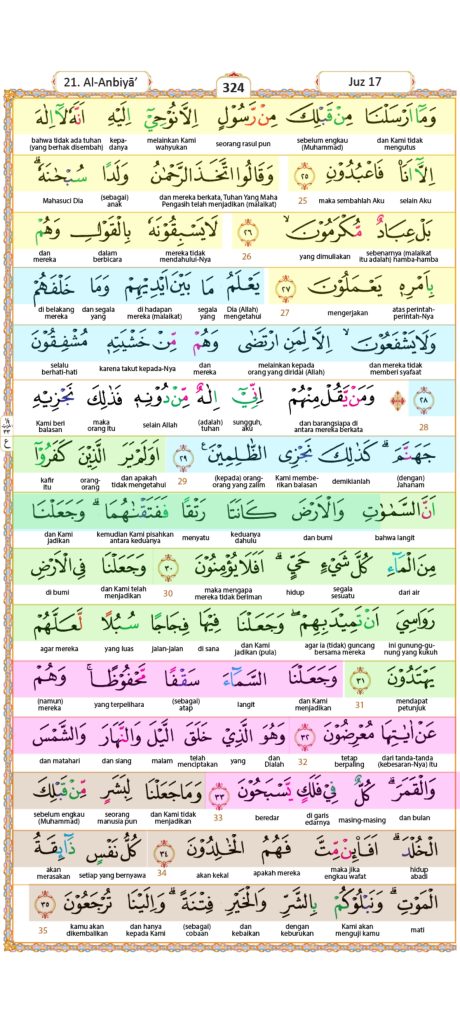 21. Al-Anbiyā’ 324 Juz 17
وَمَآ اَرْسَلْنَا مِنْ قَبْلِكَ مِنْ رَّسُوْلٍ اِلَّا نُوْحِيْٓ اِلَيْهِ اَنَّهٗ لَآ اِلٰهَ
dan Kami tidak mengutus sebelum engkau (Muhammad) seorang rasul pun melainkan Kami wahyukan kepa-danya bahwa tidak ada tuhan (yang berhak disembah)
اِلَّآ اَنَا۠ فَاعْبُدُوْنِ ٢٥ وَقَالُوا اتَّخَذَ الرَّحْمٰنُ وَلَدًا سُبْحٰنَهٗ ۗ
selain Aku maka sembahlah Aku 25 dan mereka berkata, Tuhan Yang Maha Pengasih telah menjadikan (malaikat) (sebagai) anak Mahasuci Dia
بَلْ عِبَادٌ مُّكْرَمُوْنَ ۙ ٢٦ لَا يَسْبِقُوْنَهٗ بِالْقَوْلِ وَهُمْ
sebenarnya (malaikat itu adalah) hamba-hamba yang dimuliakan 26 mereka tidak mendahului-Nya dalam berbicara dan mereka
بِاَمْرِهٖ يَعْمَلُوْنَ ٢٧ يَعْلَمُ مَا بَيْنَ اَيْدِيْهِمْ وَمَا خَلْفَهُمْ
atas perintah-perintah-Nya mengerjakan 27 Dia (Allah) mengetahui segala yang di hadapan mereka (malaikat) dan segala yang di belakang mereka
وَلَا يَشْفَعُوْنَ ۙ اِلَّا لِمَنِ ارْتَضٰى وَهُمْ مِّنْ خَشْيَتِهٖ مُشْفِقُوْنَ
dan mereka tidak memberi syafaat melainkan kepada orang yang diridai (Allah) dan mereka karena takut kepada-Nya selalu berhati-hati
٢٨ وَمَنْ يَّقُلْ مِنْهُمْ اِنِّيْٓ اِلٰهٌ مِّنْ دُوْنِهٖ فَذٰلِكَ نَجْزِيْهِ
28 dan barangsiapa di antara mereka berkata sungguh, aku (adalah) tuhan selain Allah maka orang itu Kami beri balasan
جَهَنَّمَ ۗ كَذٰلِكَ نَجْزِى الظّٰلِمِيْنَ ࣖ ٢٩ اَوَلَمْ يَرَ الَّذِيْنَ كَفَرُوْٓا
(dengan) Jahanam demikianlah Kami membe-rikan balasan (kepada) orang-orang yang zalim 29 dan apakah tidak mengetahui orang-orang yang kafir itu
اَنَّ السَّمٰوٰتِ وَالْاَرْضَ كَانَتَا رَتْقًا فَفَتَقْنٰهُمَا ۗ وَجَعَلْنَا
bahwa langit dan bumi keduanya dahulu menyatu kemudian Kami pisahkan antara keduanya dan Kami jadikan
مِنَ الْمَاۤءِ كُلَّ شَيْءٍ حَيٍّ ۗ اَفَلَا يُؤْمِنُوْنَ ٣٠ وَجَعَلْنَا فِى الْاَرْضِ
dari air segala sesuatu hidup maka mengapa mereka tidak beriman 30 dan Kami telah menjadikan di bumi
رَوَاسِيَ اَنْ تَمِيْدَ بِهِمْ ۖ وَجَعَلْنَا فِيْهَا فِجَاجًا سُبُلًا لَّعَلَّهُمْ
ini gunung-gu-nung yang kukuh agar ia (tidak) guncang bersama mereka dan Kami jadikan (pula) di sana jalan-jalan yang luas agar mereka
يَهْتَدُوْنَ ٣١ وَجَعَلْنَا السَّمَاۤءَ سَقْفًا مَّحْفُوْظًا ۚ وَهُمْ
mendapat petunjuk 31 dan Kami menjadikan langit (sebagai) atap yang terpelihara (namun) mereka
عَنْ اٰيٰتِهَا مُعْرِضُوْنَ ٣٢ وَهُوَ الَّذِيْ خَلَقَ الَّيْلَ وَالنَّهَارَ وَالشَّمْسَ
dari tanda-tanda (kebesaran-Nya) itu tetap berpaling 32 dan Dialah yang telah menciptakan malam dan siang dan matahari
وَالْقَمَرَ ۗ كُلٌّ فِيْ فَلَكٍ يَّسْبَحُوْنَ ٣٣ وَمَا جَعَلْنَا لِبَشَرٍ مِّنْ قَبْلِكَ
dan bulan masing-masing di garis edarnya beredar 33 dan Kami tidak menjadikan seorang manusia pun sebelum engkau (Muhammad)
الْخُلْدَ ۗ اَفَا۟ىِٕنْ مِّتَّ فَهُمُ الْخٰلِدُوْنَ ٣٤ كُلُّ نَفْسٍ ذَاۤىِٕقَةُ
hidup abadi maka jika engkau wafat apakah mereka akan kekal 34 setiap yang bernyawa akan merasakan
الْمَوْتِ ۗ وَنَبْلُوْكُمْ بِالشَّرِّ وَالْخَيْرِ فِتْنَةً ۗ وَاِلَيْنَا تُرْجَعُوْنَ ٣٥
mati Kami akan menguji kamu dengan keburukan dan kebaikan (sebagai) cobaan dan hanya kepada Kami kamu akan dikembalikan 35